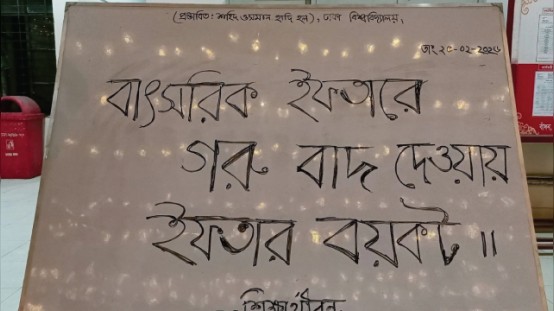 (প্রস্তাবিত: শহীদ ওসমান হাদি হল), ঢাকা বিশ্ববিদ্যালয়,
তাং ২৫-০২-২০২৬
বাৎসরিক ইফতারে
গরু বাদ দেওয়ায়
ইফতার বয়কট ॥
শিক্ষার্থীবৃন্দ